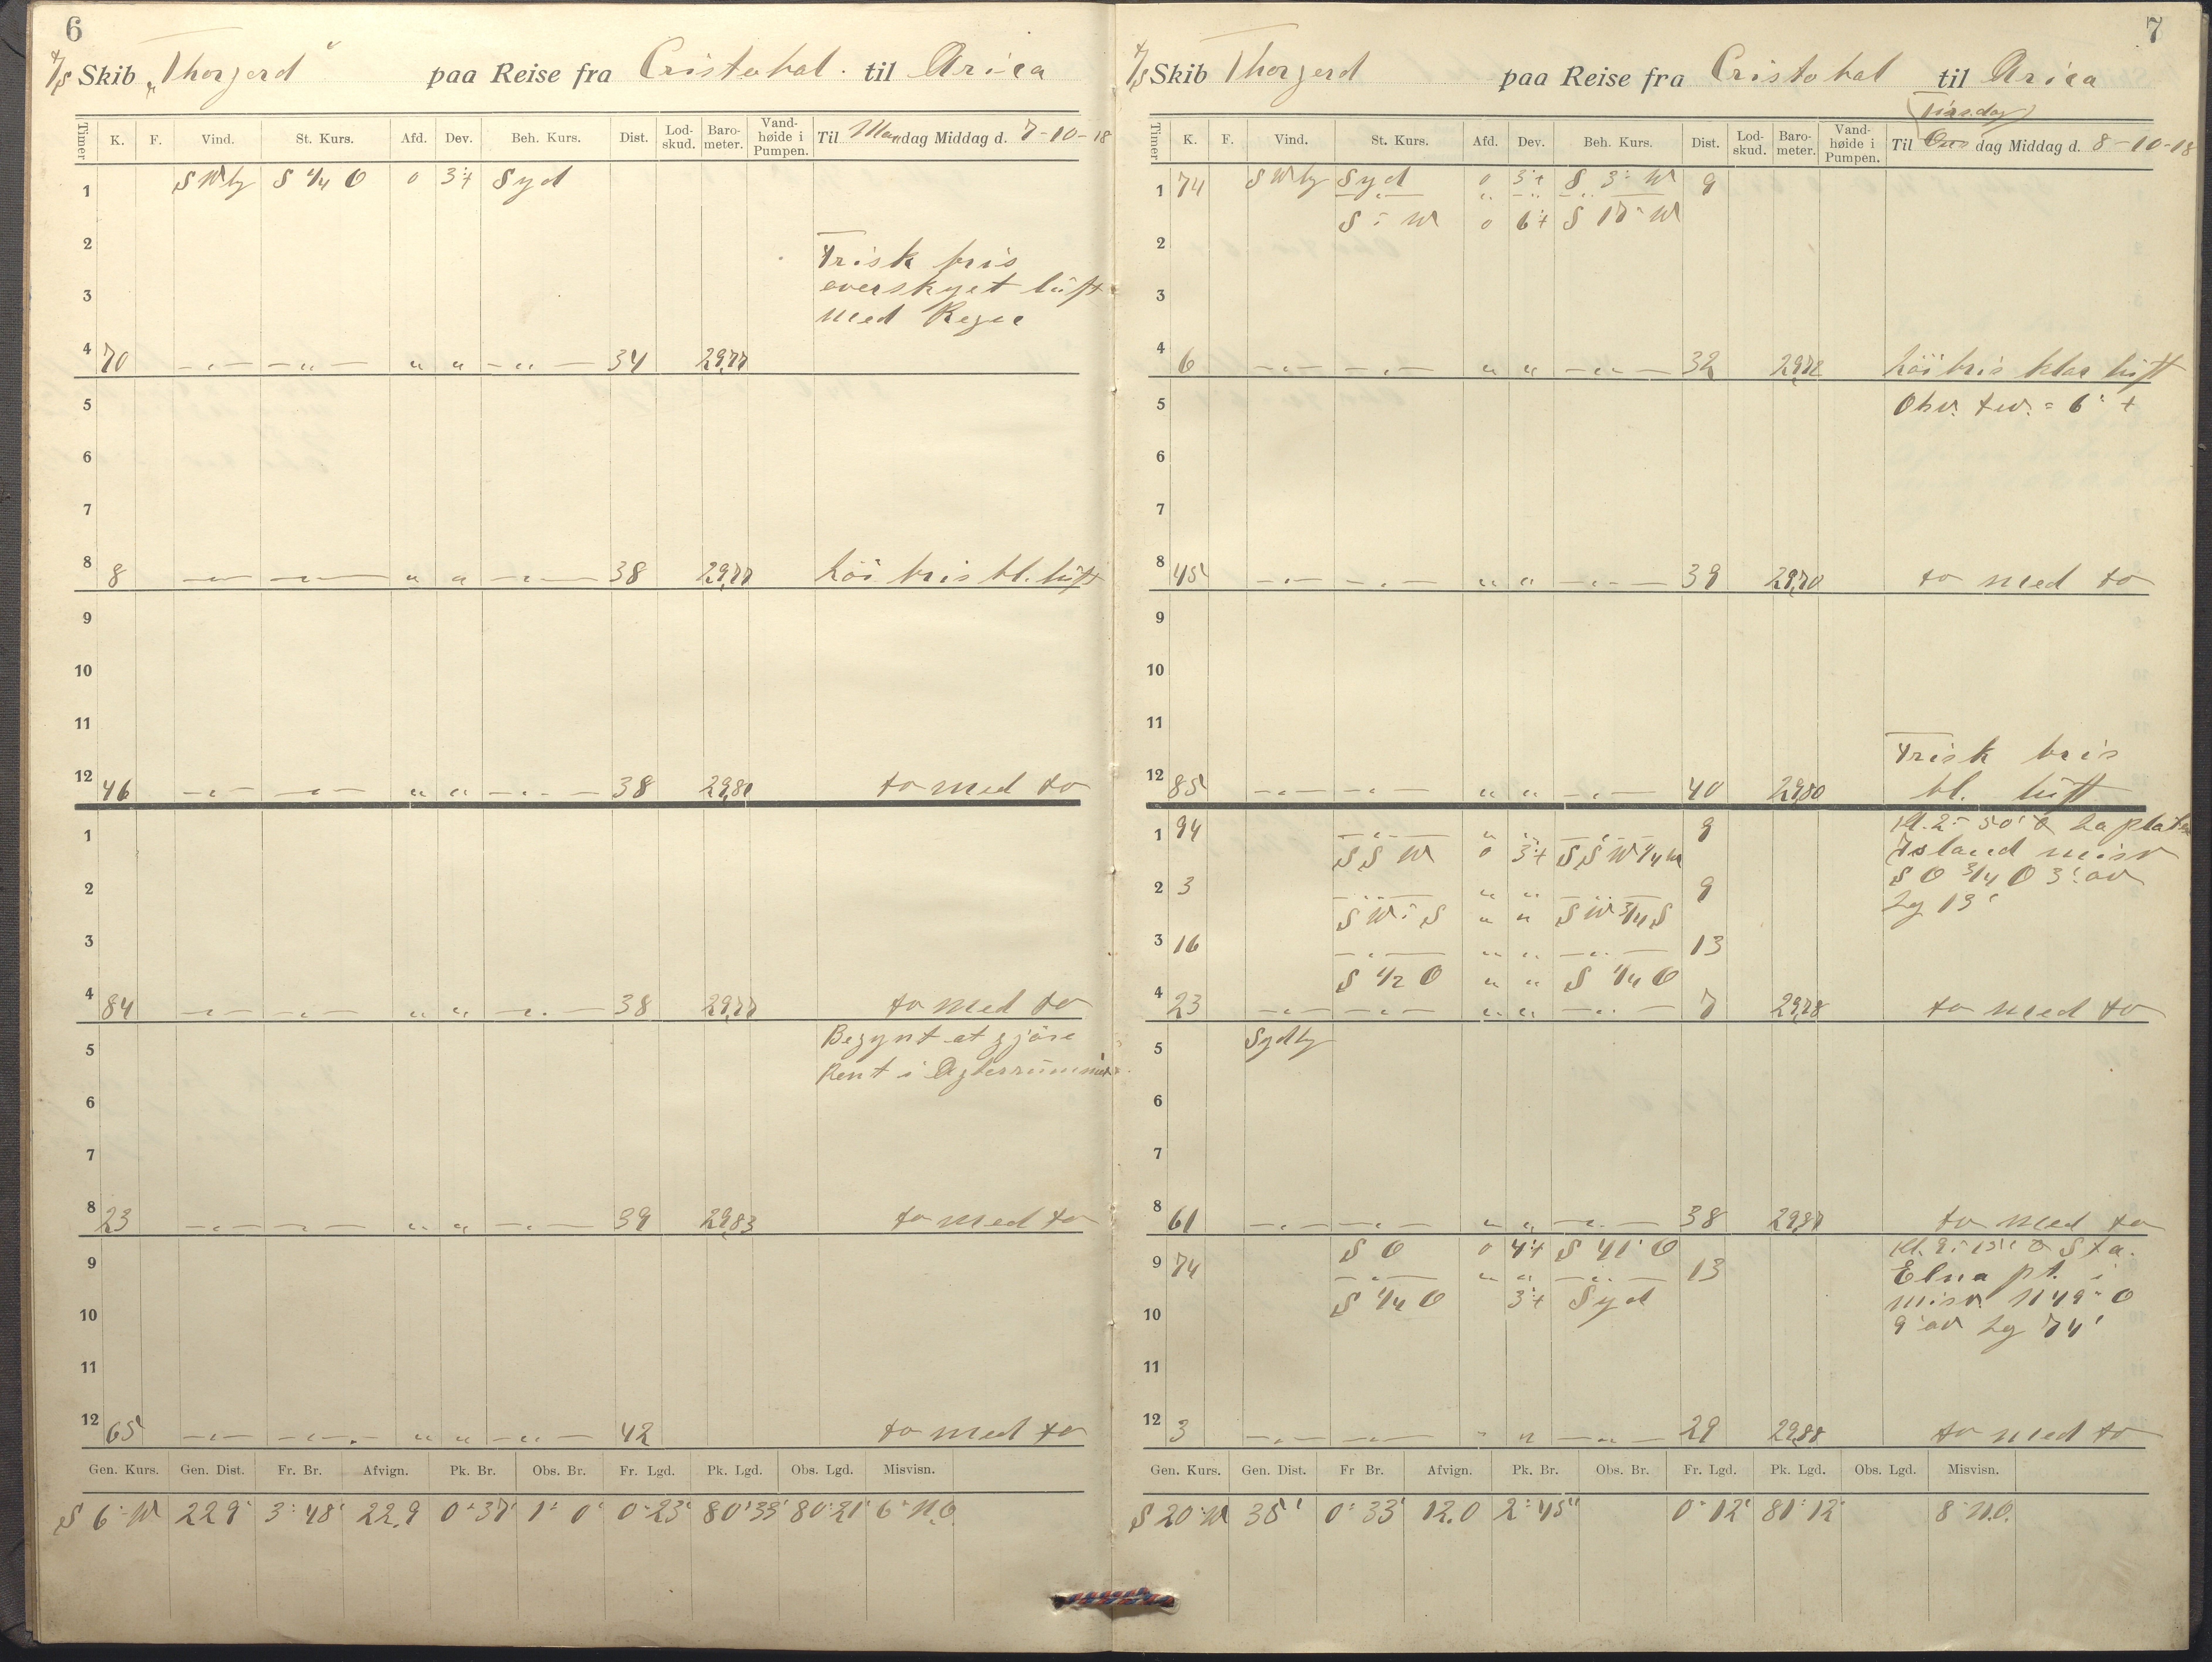 6
S/S Skib „Thorgerd" paa Reise fra Cristobal. til Arica
Timer K. F. Vind. St. Kurs. Afd. Dev. Beh. Kurs. Dist. Lod-skud. Baro-meter. Vand-høide i Pumpen. Til Mandag Middag d. 7-10-18
1 SWly S 1/4 O 0 3°+ Syd
2 Frisk bris
3 overskyet luft
med Regn
4 70 — „ — — „ — „ „ — „ — 34 29,77
5
6
7
8 8 — „ — — „ — „ „ — „ — 38 29,77 Löi bris bl. luft
9
10
11
12 46 — „ — — „ — „ „ — „ — 38 29,80 to med to
1
2
3
4 84 — „ — — „ — „ „ — „ — 38 29,77 to med to
5 Begynt at gjöre
Rent i Agterrummet
6
7
8 23 — „ — — „ — „ „ — „ — 39 29,83 to med to
9
10
11
12 65 — „ — — „ — „ „ — „ — 42 to med to
Gen. Kurs. Gen. Dist. Fr. Br. Afvign. Pk. Br. Obs. Br. Fr. Lgd. Pk. Lgd. Obs. Lgd. Misvisn.
S 6° W 229' 3° 48' 22.9 0° 37' 1° 0' 0° 23' 80° 33' 80° 21' 6° N.O.
7
S/S Skib Thorgerd paa Reise fra Cristobal til Arica
(Tirsdag)
Timer K. F. Vind. St. Kurs. Afd. Dev. Beh. Kurs. Dist. Lod-skud. Baro-meter. Vand-høide i Pumpen. Til Ons dag Middag d. 8-10-18
1 74 SWly Syd 0 3°+ S 3° W 9
— „ — „ — „ — — „ —
S ° W 0 6°+ S 17° W
2
3
4 6 — „ — — „ — „ „ — „ — 32 29,72 Löi bris klar luft
5 Obv. dev. = 6° +
6
7
8 45 — „ — — „ — „ „ — „ — 39 29,70 to med to
9
10
11 Frisk bris
12 85 — „ — — „ — „ „ — „ — 40 29,80 bl. luft
1 94 — „ — „ „ — „ — 9 Kl. 2° 50' La plata
SSW 0 3°+ SSW 1/4 W Island misv
2 3 — „ — „ „ — „ — 9 SO 3/4 O 3' av
SW ° S „ „ SW 3/4 S Lg 13'
3 16 — „ — „ „ — „ — 13
S 1/2 O „ „ S 1/4 O
4 23 — „ — — „ — „ „ — „ — 7 29,78 to med to
5 Sydly
6
7
8 61 — „ — — „ — „ „ — „ — 38 29,87 to med to
S O 0 4°+ S 41° O Sta.
9 74 — „ — „ „ — „ — 13 Elna pt. i
S 1/4 O 3°+ Syd misv. N 49° O
10 9' av Lg 74'
11
12 3 — „ — — „ — „ „ — „ — 29 29,88 to med to
Gen. Kurs. Gen. Dist. Fr Br. Afvign. Pk. Br. Obs. Br. Fr. Lgd. Pk. Lgd. Obs. Lgd. Misvisn.
S 20° W 35' 0° 33' 12.0 2° 45' 0° 12' 81° 12' 8° N.O.